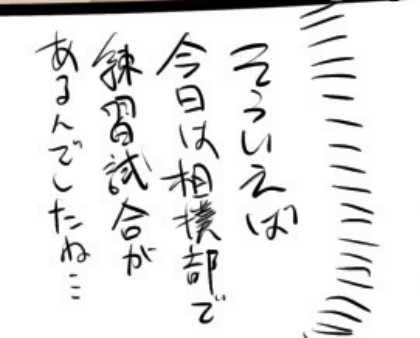 そういえば
今日は相撲部で
練習試合が
あるんでしたね…